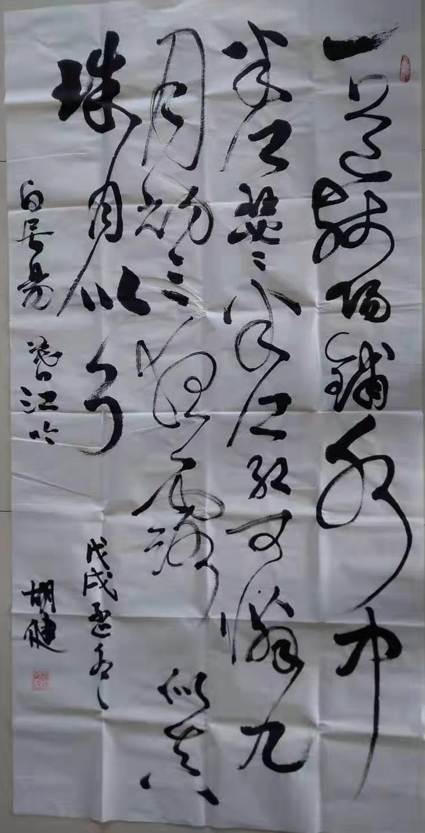 一道残陽鋪水中
半江瑟々半江红可憐九
月初三夜露似真
珠月似弓
戊戌
白居易 暮江吟
胡健